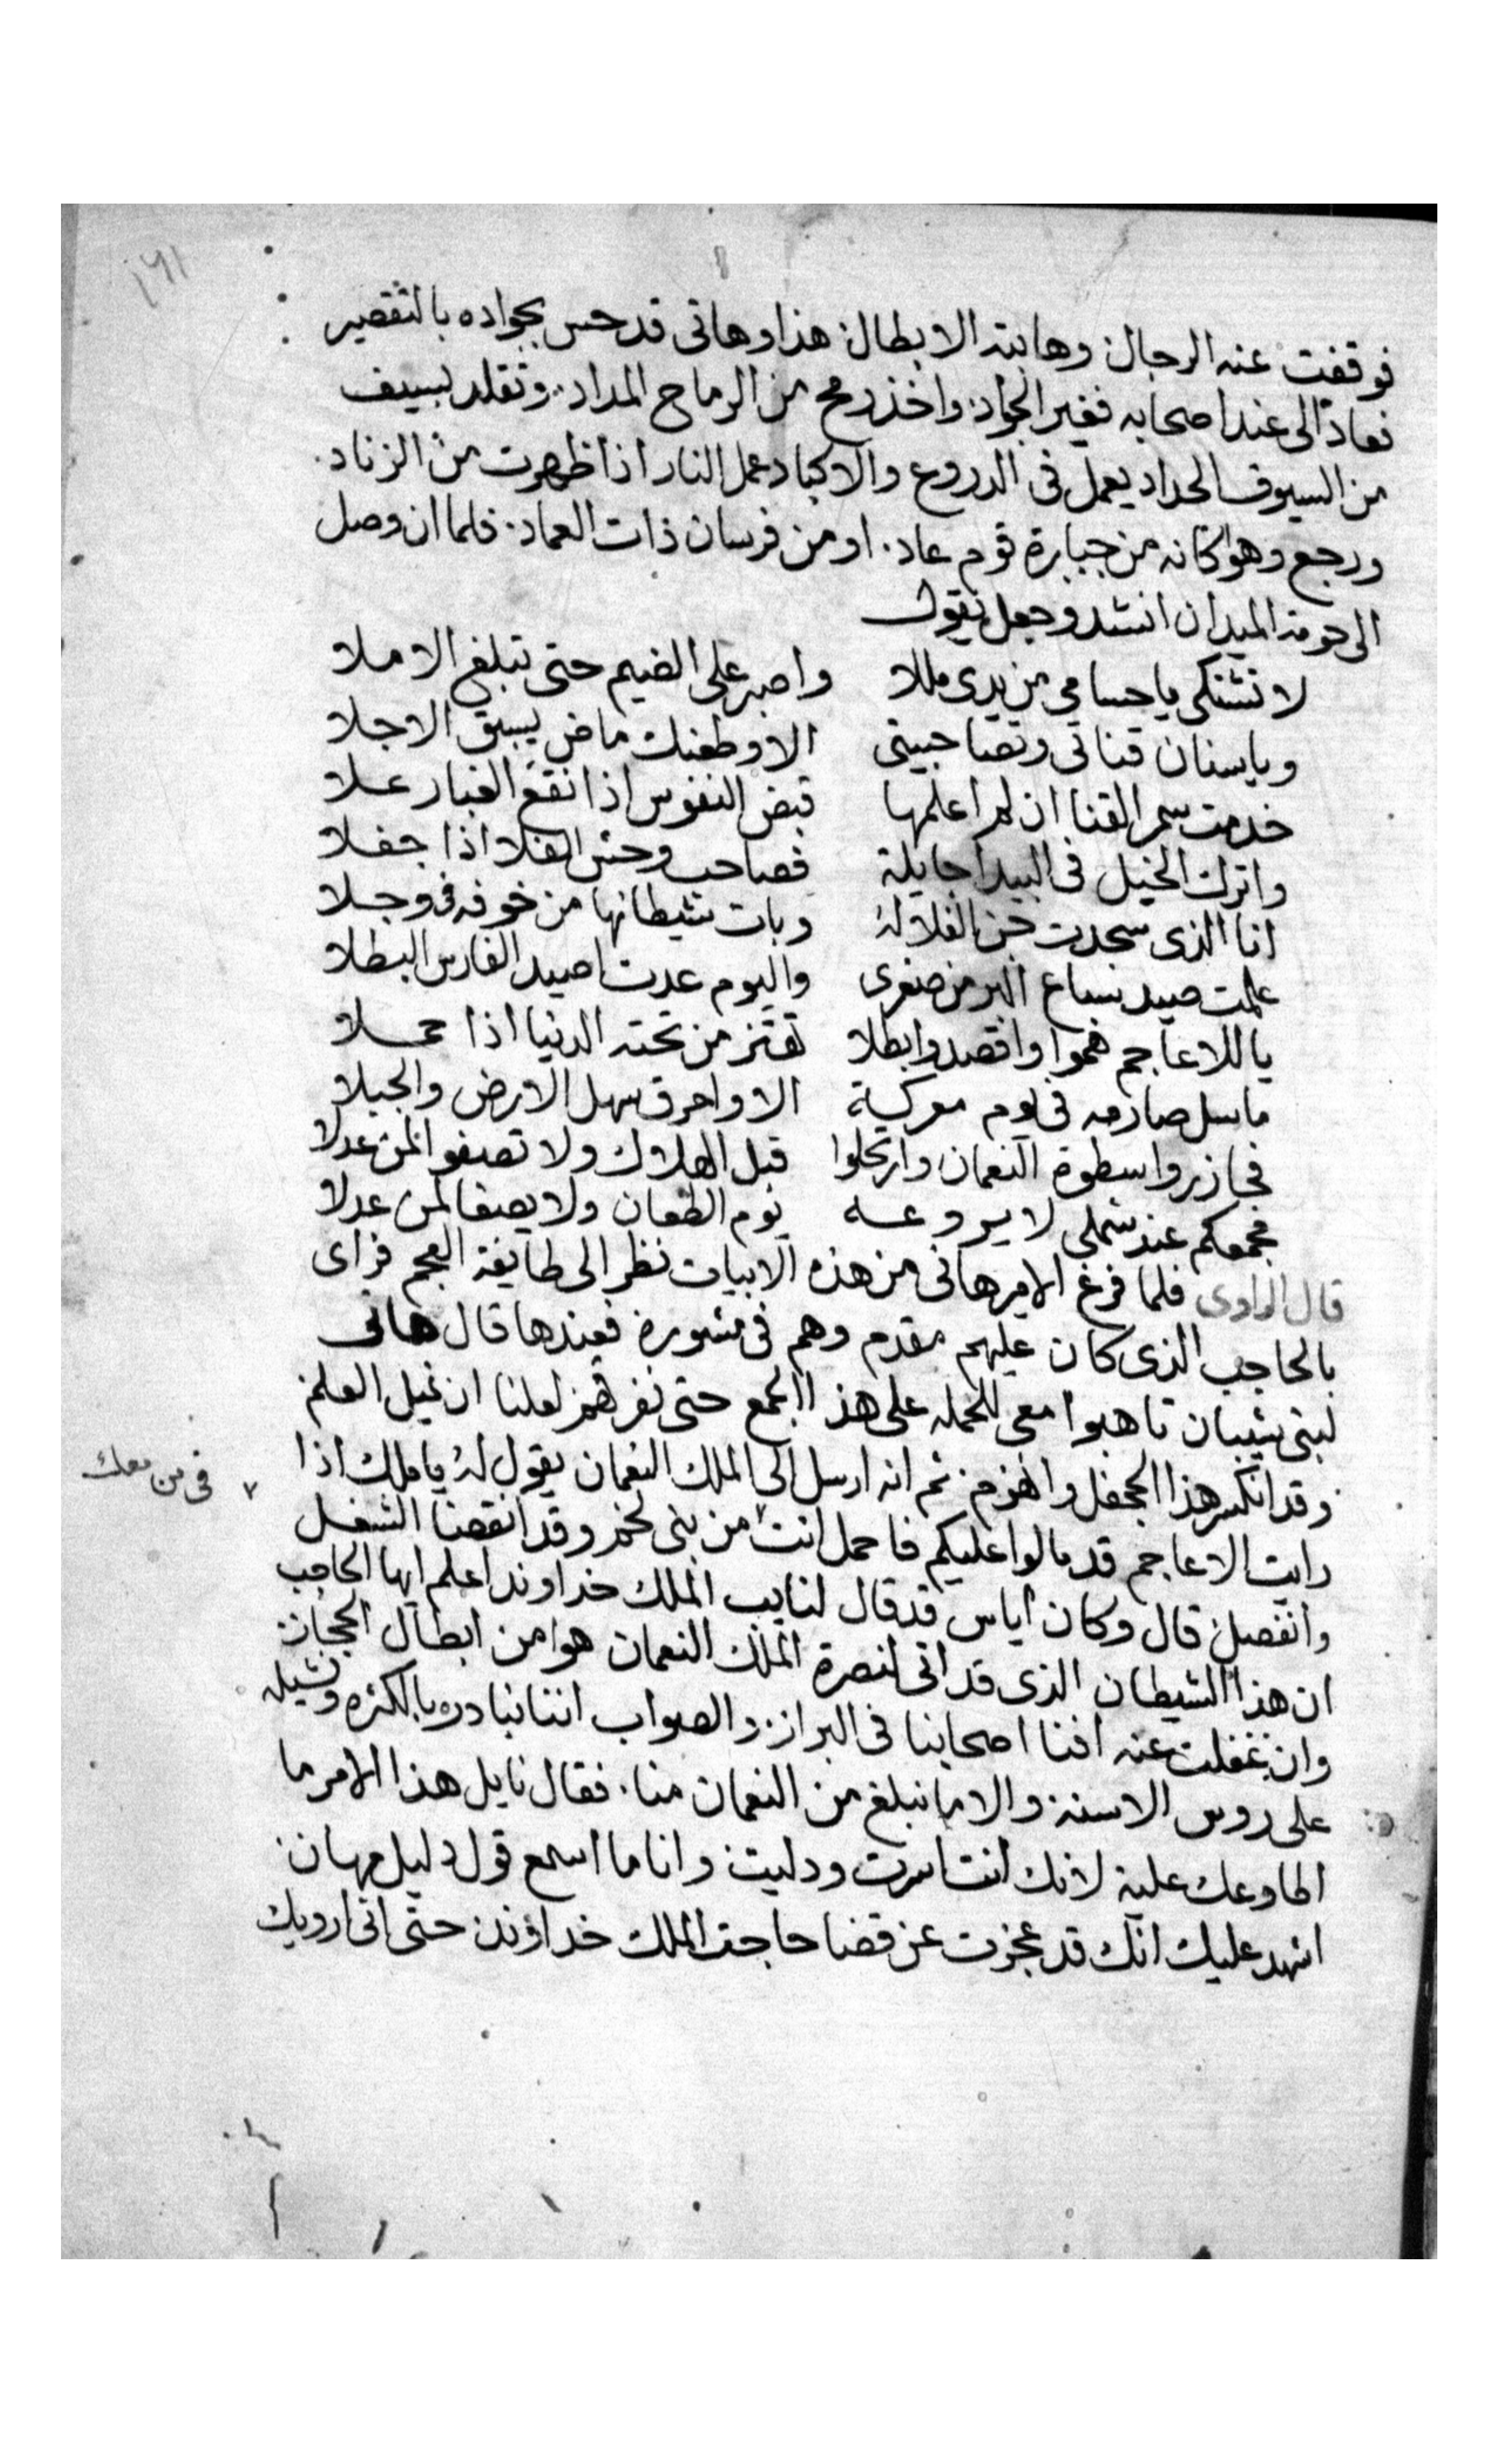 ١٩١
فوقفت عنه الرجال وهابته الابطال هذا وهانى قد حس بجواده بالتقصير
فعاد الى عند اصحابه فغير الجواد واخذ رمح من الرماح المداد وتقلد بسيف
من السيوف الحداد يعمل فى الدروع والاكباد عمل النار اذا ظهرت من الزناد
ورجع وهو كانه من جبابرة قوم عاد او من فرسان ذات العماد فلما ان وصل
الى حومة الميدان انشد وجعل يقول
لا تشتكى يا حسامى من يدى مللا واصبر على الضيم حتى تبلغ الاملا
ويا سنان قناتى وتصاحبيتى الا وطعنك ماض يسبق الاجلا
خدمت سمر القنا ان لم اعلمها قبض النفوس اذا نقع الغبار علا
واترك الخيل فى البيدا جايلة فصاحب وحش الفلا اذا جفلا
انا الذى سجدت جن الفلا له وبات شيطانها من خوفه فى وجلا
علمت صيد سباع البر من صغرى واليوم عدت اصيد الفارس البطلا
يا للاعاجم هموا واقصدوا بطلا تهتز من تحته الدنيا اذا حملا
ما سل صارمه فى يوم معركة الا واحرق سهل الارض والجبلا
فحاذروا سطوة النعمان وارتحلوا قبل الهلاك ولا تصغوا لمن عدلا
فجمعكم عند شملى لا يروعه يوم الطعان ولا يصغا لمن عدلا
قال الراوى فلما فرغ الامير هانى من هذه الابيات نظر الى طايفة العجم فراى
بالحاجب الذى كان عليهم مقدم وهم فى مشورة فعندها قال هانى
لبنى شيبان تاهبوا معى للحمله على هذا الجمع حتى نفرقهم لعلنا ان نميل العلم
وقد انكسر هذا الجحفل وانهزم ثم انه ارسل الى الملك النعمان يقول له يا ملك اذا
فى من معك
رايت الاعاجم قد مالوا عليكم فاحمل انت من بنى لخم وقد انقضا الشغل
وانفصل قال وكان اياس قد قال لنايب الملك خداوند اعلم ايها الحاجب
ان هذا الشيطان الذى قد اتى لنصرة الملك النعمان هوا من ابطال الحجاز
وان غفلت عنه افنا اصحابنا فى البراز والصواب اننا نبادره بالكثره ونشيله
على روس الاسنة والا ما نبلغ من النعمان منا فقال نايل هذا الامر ما
اطاوعك عليه لانك انت اسرت ودليت وانا ما اسمع قول دليل مهان
اشهد عليك انك قد عجزت عن قضا حاجة الملك خداوند حتى انى اوريك